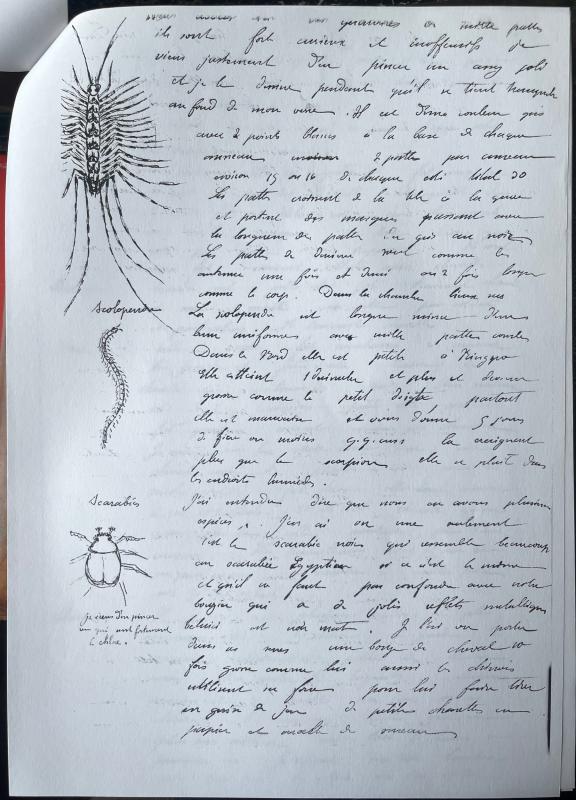 ils sont fort curieux et inoffensifs je
viens justement d'en pincer un assez joli
et je le dessine pendant qu'il se tient tranquille
au fond de mon verre. Il est d'une couleur gris
avec 2 points blancs à la base de chaque
anneau 2 pattes par anneau
environ 15 ou 16 de chaque côté total 30
Les pattes croissent de la tête à la queue
et portent des marques passant avec
la longueur des pattes du gris au noir
Les pattes de derrière sont comme les
antennes une fois et demi ou 2 fois longues
comme le corps. Dans la chambre
Scolopendre
La scolopendre est longue mince d'une
brun uniforme avec mille pattes courtes
Dans le Nord elle est petite à Ningpo
elle atteint 1 décimètre et plus et devient
grosse comme le petit doigt partout
elle est mauvaise et vous donne 5 jours
de fièvre au moins q.q. uns la craignent
plus que le scorpion elle se plait dans
les endroits humides.
Scarabées
J'ai entendu dire que nous en avons plusieurs
espèces. J'en ai vu une seulement
c'est le scarabée noir qui ressemble beaucoup
au scarabée Egyptien si ce n'est le même
et qu'il ne faut pas confondre avec notre
qui a de jolis reflets métalliques
celui ci est noir mat. Je l'ai vu porter
dans les rues une boule de cheval 10
fois grosse comme lui aussi les chinois
utilisent sa force pour lui faire tirer
en guise de jeu de petites charettes en
papier et
je viens d'en pincer
un qui sent fortement